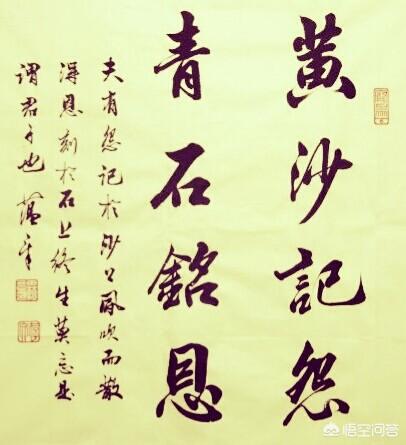 黄沙記怨
青石銘恩
夫有怨記於沙上風吹而散
得恩刻於石上終生莫忘是
謂君子也
悟空问答